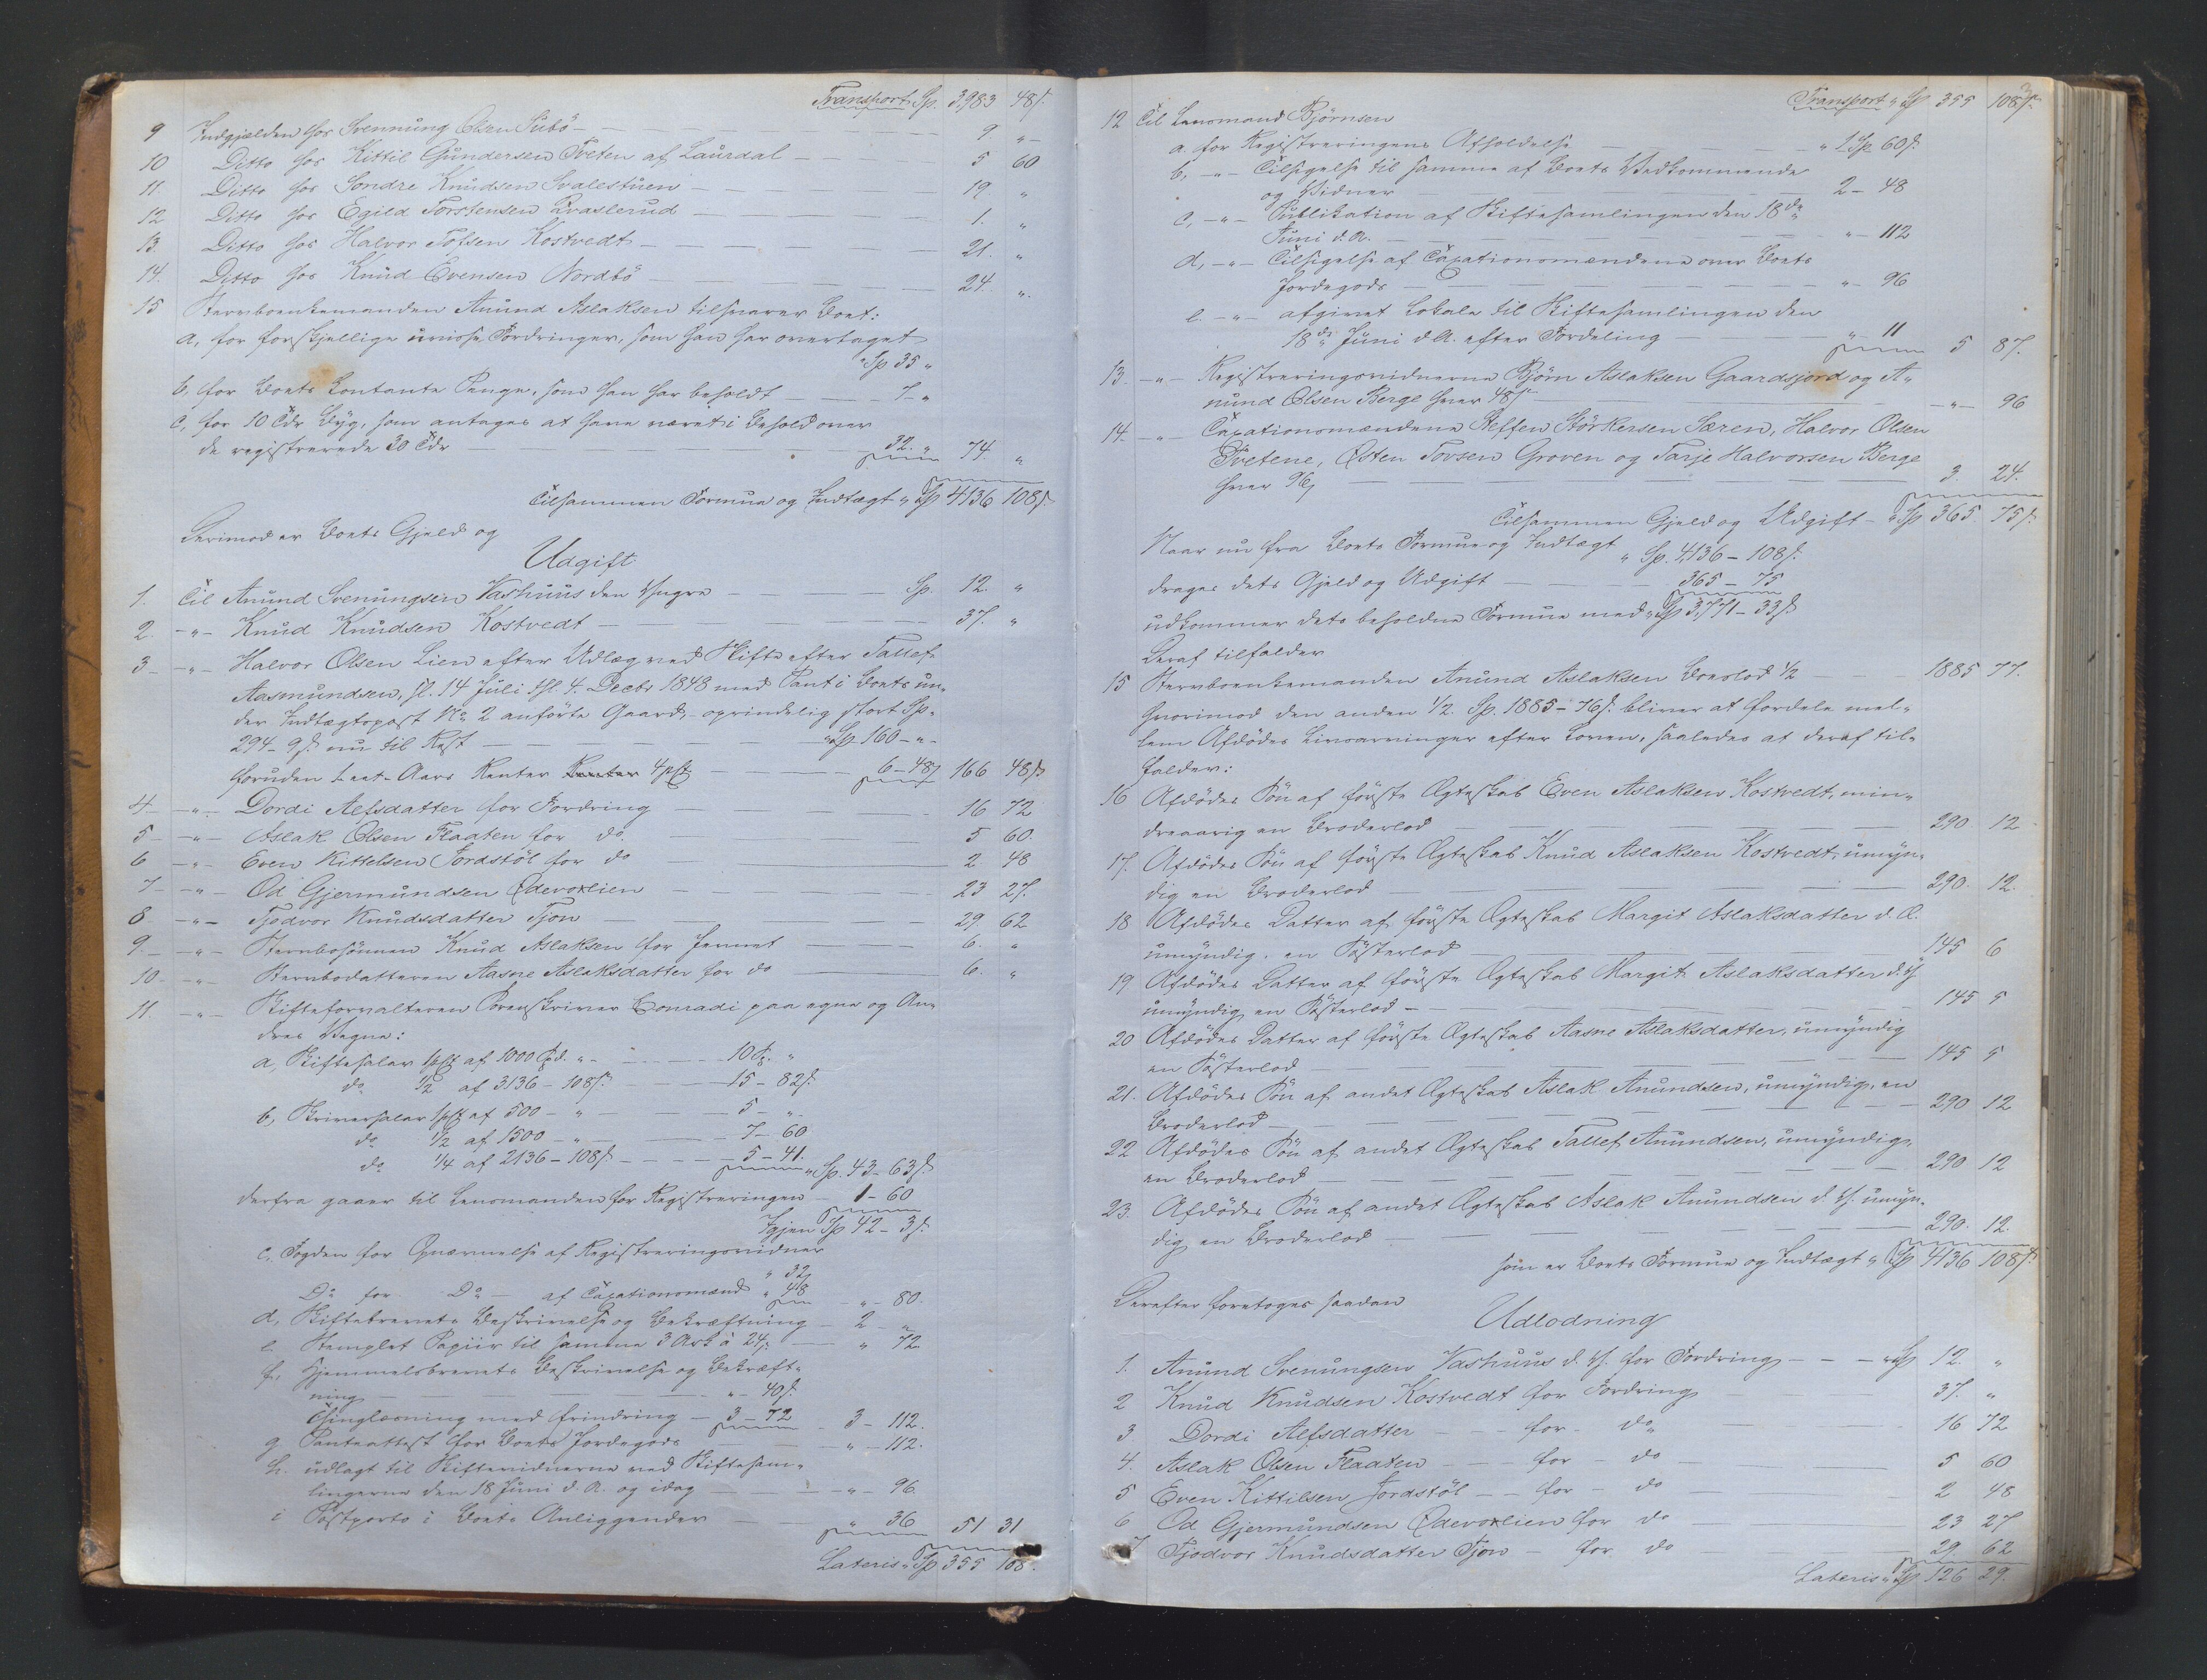 Transport Sp. 3,983 48 ſ.
9 Indgjælden hos Svennung Olsen Sübö — 9. "
10 Ditto hos Kittil Gundersen Tveten af Laurdal — 5 60
11. Ditto hos Sondre Knudsen Svalestuen — 19 "
12 Ditto hos Egild Torstensen Qvaslerud — 1. "
13 Ditto hos Halvor Tofsen Kostvedt — 21. "
14. Ditto hos Knud Evensen Nordbö — 24. "
15 Stervboenkemanden Anund Aslaksen tilsvarer Boet:
a, for forskjellige uvisse Fordringer, som han har overtaget
Sp 35 "
b, for Boets Contante Penge, som han har beholdt — 7 "
c, for 10 Tdr Byg, som antages at have været i Behold over
de registrerede 30 Tdr — 32. " 74. "
Tilsammen Formue og Indtægt " Sp 4136 108 ſ.
Derimod er Boets Gjeld og
Udgift
1. Til Anund Svenungsen Vashuus den Yngre — Sp. 12. "
2. — " — Knud Knudsen Kostvedt — 37. "
3 — " — Halvor Olsen Lien efter Udlæg ved Skifte efter Tallef
Aasmundsen, sl. 14 Juli thl. 4. Decbr 1848 med Pant i Boets un-
der Indtægtspost No 2 anförte Gaard, oprindelig stort Sp.
294 - 9 ſ. nu til Rest — Sp. 160 - " -
foruden 1 eet Aars Renter Renter 4 pCt — 6 - 48 ſ 166 48 ſ.
4 — " — Dordi Alfsdatter for Fordring — 16 72
5 — " — Aslak Olsen Flaaten for do — 5 60.
6 — " — Even Kittelsen Jordstöl for do — 2 48
7 — " — Od Gjermundsen Ödevoxlien — 23 27.
8 — " — Tjodvor Knudsdatter Tjon — 29 62
9. — " — Stervbosönnen Knud Aslaksen for Jernet — 6. "
10. — " — Stervbodatteren Aasne Aslaksdatter for do — 6. "
11. — " — Skifteforvalteren Sorenskriver Conradi paa egne og An-
dres Vegne:
a, Skiftesalær 1 pCt af 1000 Spd. " — 10 Sp. "
do ½ af 3136 - 108 ſ. — 15 - 82 ſ.
b, Skriversalær 1 pCt af 500 - " — 5 - "
do ½ af 1500 - " — 7 - 60
do ¼ af 2136 - 108 ſ — 5 - 41. " Sp. 43 - 63 ſ.
derfra gaaer til Lensmanden for Registreringen — 1 - 60
Igjen Sp 42 - 3 ſ.
c. Fogden for Opnævnelse af Registreringsvidner
" 32
Do for Do — af Taxationsmænd " 48 — " - 80.
d, Skiftebrevets Beskrivelse og Bekræftning — 2 - "
e. Stemplet Papiir til samme 3 Ark à 24 ſ. — " 72
f, Hjemmelsbrevets Beskrivelse og Bekræft-
ning — " - 40 ſ.
Thinglæsning med Erindring — 3 - 72 3 - 112.
g Panteattest for Boets Jordegods — " - 112.
h. udlagt til Skiftevidnerne ved Skiftesam-
lingerne den 18 Juni d. A. og idag — " - 96.
i Postporto i Boets Anliggender — " 36 51 31
Lateris " Sp 355 108.
Transport " Sp 355 108 ſ.
12 Til Lensmand Björnsen
a. for Registreringens Afholdelse — " 1 Sp 60 ſ.
b, — " — Tilsigelse til samme af Boets Vedkommende
og Vidner — 2 - 48
c, — " — Publikation af Skiftesamlingen den 18de
Juni d. A. — " - 112
d, — " — Tilsigelse af Taxationsmændene over Boets
Jordegods — " - 96
e. — " — afgivet Lokale til Skiftesamlingen den
18de Juni d. A. efter Fordeling — " 11 5 87.
13. — " — Registreringsvidnerne Björn Aslaksen Gaardsjord og A-
nund Olsen Berge hver 48 ſ — " 96
14. — " — Taxationsmændene Steffen Störkersen Særen, Halvor Olsen
Tvetene, Østen Tovsen Groven og Tarje Halvorsen Berge
hver 96 ſ — 3. 24.
Tilsammen Gjeld og Udgift — " Sp. 365. 75 ſ.
Naar nu fra Boets Formue og Indtægt " Sp. 4136 - 108 ſ.
drages dets Gjeld og Udgift — 365 - 75
udkommer dets beholdne Formue med " Sp 3,771 - 33 ſ
Deraf tilfalder
15 Stervboenkemanden Anund Aslaksen Boeslod ½ — 1885 77.
hvorimod den anden ½. Sp. 1885 - 76 ſ. bliver at fordele mel-
lem Afdödes Livsarvinger efter Loven, saaledes at deraf til-
falder:
16 Afdödes Sön af förste Ægteskab Even Aslaksen Kostvedt, min-
dreaarig en Broderlod — 290 12
17. Afdödes Sön af förste Ægteskab Knud Aslaksen Kostvedt, umyn-
dig en Broderlod — 290. 12.
18 Afdödes Datter af förste Ægteskab Margit Aslaksdatter d. Æ.
umyndig, en Søsterlod — 145 6
19 Afdödes Datter af förste Ægteskab Margit Aslaksdatter d. Y
umyndig, en Søsterlod — 145 5
20 Afdödes Datter af förste Ægteskab Aasne Aslaksdatter, umyndig
en Søsterlod — 145 5
21. Afdödes Sön af andet Ægteskab Aslak Anundsen, umyndig, en
Broderlod — 290 12
22 Afdödes Sön af andet Ægteskab Tallef Anundsen, umyndig,
en Broderlod — 290 12
23. Afdödes Sön af andet Ægteskab Aslak Anundsen d. Y. umyn-
dig en Broderlod — 290. 12.
som er Boets Formue og Indtægt " Sp 4136 108 ſ.
Derefter foretoges saadan
Udlodning
1. Anund Svenungsen Vashuus d. Y. for Fordring — — " Sp 12. "
2 Knud Knudsen Kostvedt for Fordring — 37. "
3 Dordi Alfsdatter — for — do — 16 72
4. Aslak Olsen Flaaten — for — do — 5 60
5 Even Kittilsen Jordstöl — for — do — 2 48
6 Od Gjermundsen Ödevoxlien for do — 23 27
7 Tjodvor Knudsdatter Tjon — for do — 29 62
Lateris " Sp 126 29.